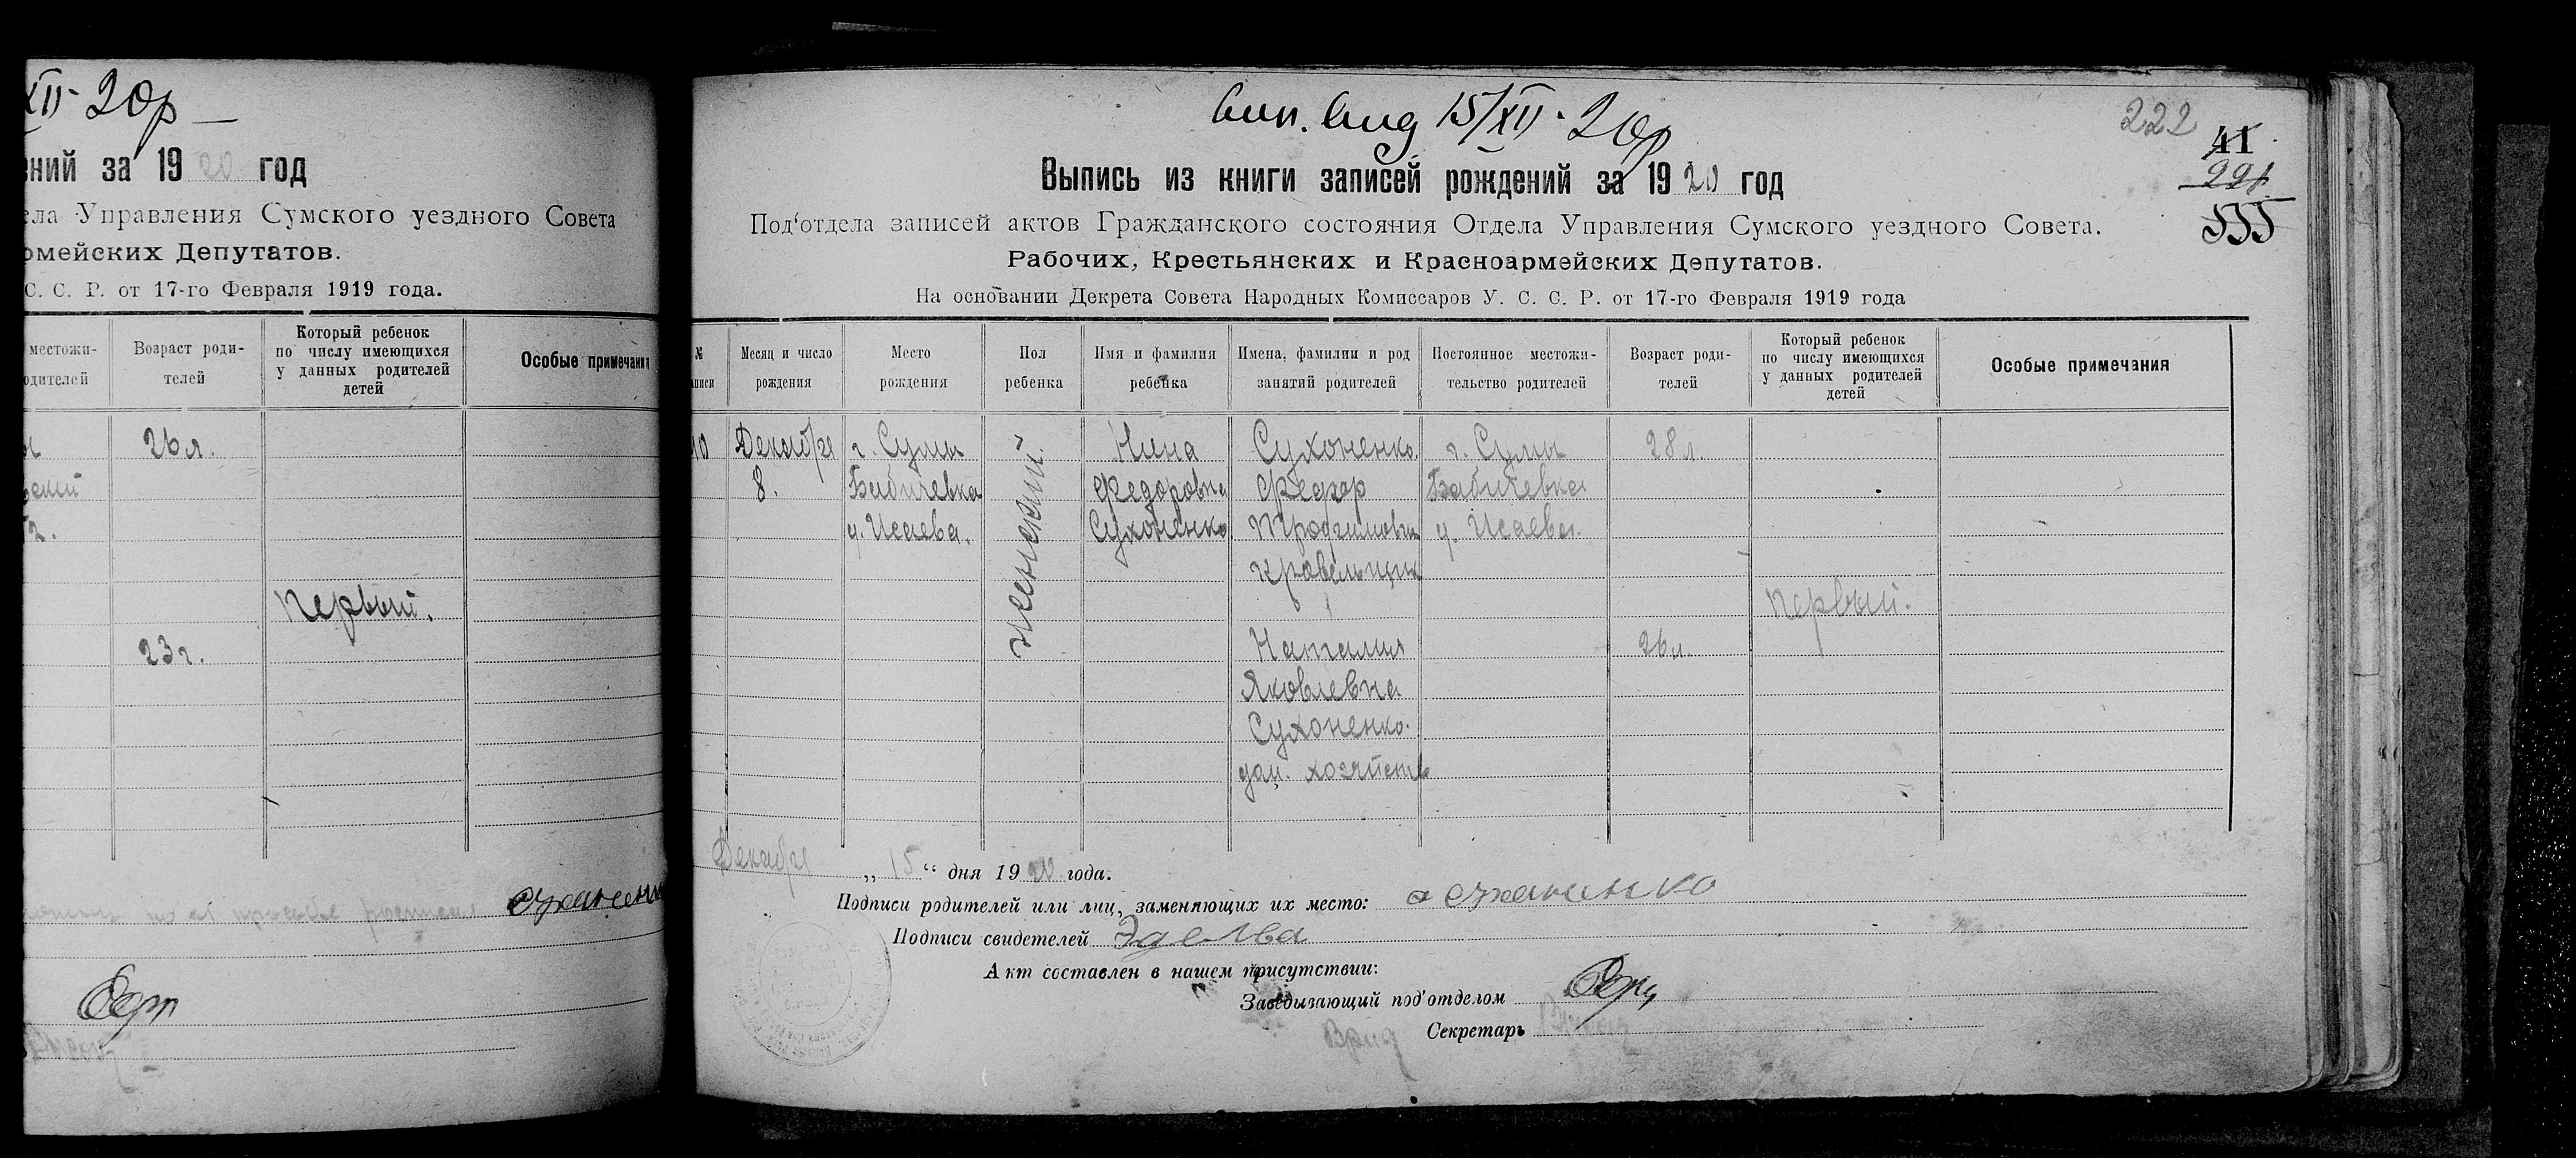 XII-20р
ний за 1920 год
ела Управления Сумского уездного Совета
рмейских Депутатов.
С. С. Р. от 17-го Февраля 1919 года.
местожи-
одителей
Возраст роди-
телей
Который ребенок
по числу имеющихся
у данных родителей
детей
Особые примечания
26 л.
Первый.
23 г.
15/XII-20р
222
41
221
555
Выпись из книги записей рождений за 1920 год
Под'отдела записей актов Гражданского состояния Отдела Управления Сумского уездного Совета.
Рабочих, Крестьянских и Красноармейских Депутатов.
На основании Декрета Совета Народных Комиссаров У. С. С. Р. от 17-го Февраля 1919 года
№
аписи
Месяц и число
рождения
Место
рождения
Пол
ребенка
Имя и фамилия
ребенка
Имена, фамилии и род
занятий родителей
Постоянное местожи-
тельство родителей
Возраст роди-
телей
Который ребенок
по числу имеющихся
у данных родителей
детей
Особые примечания
10
Декабря
8.
г. Сумы
Бабичевка
д. Исаева.
женский
Нина
Федоровна
Сухоненко.
Сухоненко.
Федор
Трофимович
кровельщик
Наталия
Яковлевна
Сухоненко.
дом. хозяйств
г. Сумы
Бабичевка
д. Исаева.
28 л.
26 л.
Первый.
Декабря „15“ дня 1920 года.
Подписи родителей или лиц, заменяющих их место:
Подписи свидетелей
Акт составлен в нашем присутствии:
Заведывающий под'отделом
Врид Секретарь